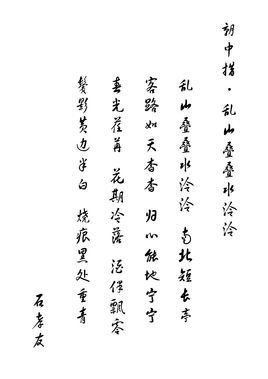 朝中措·乱山叠叠水泠泠
乱山叠叠水泠泠 南北短长亭
客路如天杳杳 归心能地宁宁
春光荏苒 花期冷落 酒伴飘零
鬓影黄边半白 烧痕黑处重青
石孝友